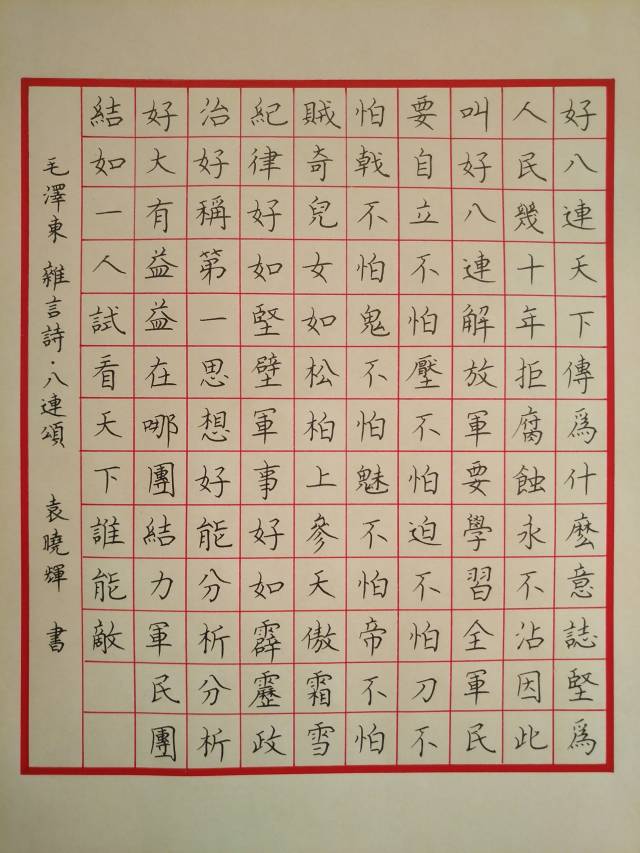 好八連天下傳爲什麼意誌堅爲
人民幾十年拒腐蝕永不沾因此
叫好八連解放軍要學習全軍民
要自立不怕壓不怕迫不怕刀不
怕戟不怕鬼不怕魅不怕帝不怕
賊奇兒女如松柏上參天傲霜雪
紀律好如堅壁軍事好如霹靂政
治好稱第一思想好能分析分析
好大有益益在哪團結力軍民團
結如一人試看天下誰能敵
毛澤東 雜言詩·八連頌 袁曉輝 書